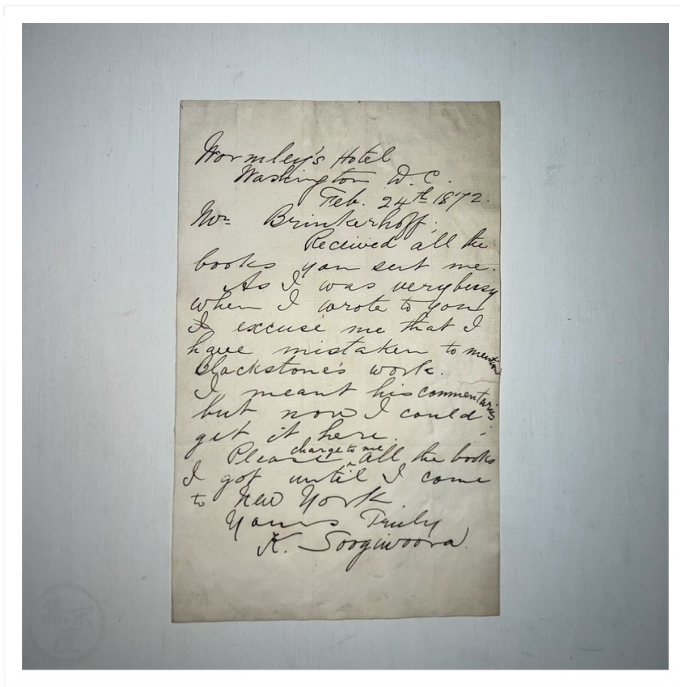 Wormley's Hotel
Washington D. C.
Feb. 24th 1872.
Mr. Brinkerhoff.
Received all the
books you sent me.
As I was very busy
when I wrote to you
I excuse me that I
have mistaken to mention
Blackstone's work.
I meant his commentaries
but now I could
get it here.
Please charge to me all the books
I got until I come
to New York.
Yours Truly
K. Soogiwoora.